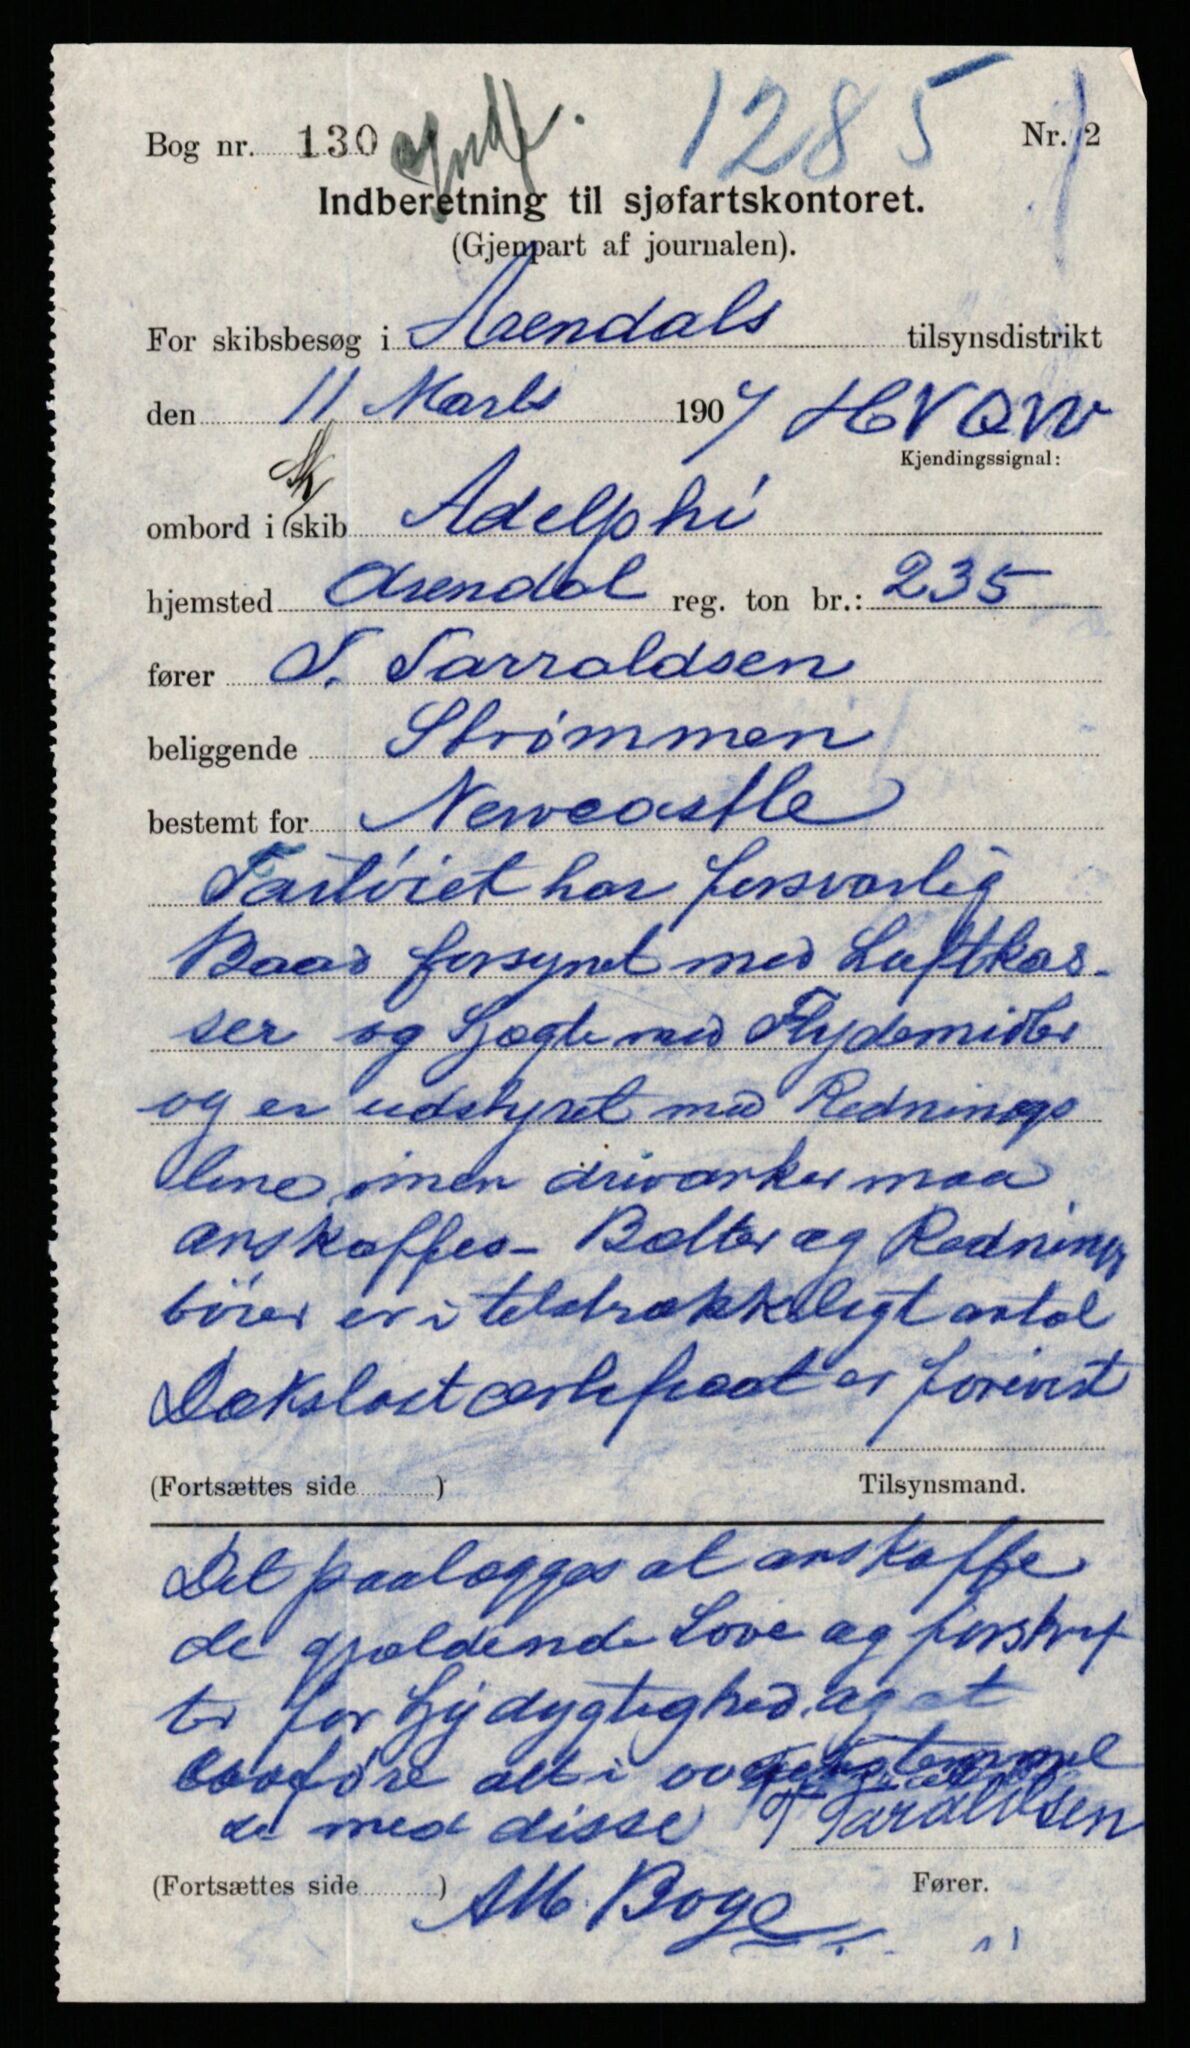 1285
Bog nr. 130
Nr. 2
Indberetning til sjøfartskontoret.
(Gjenpart af journalen).
For skibsbesøg i Arendals tilsynsdistrikt
den 11 Marts 1907 HVQW
Kjendingssignal:
ombord i Sk skib Adelphi
hjemsted Arendal reg. ton br.: 235
fører T. Tarraldsen
beliggende Strømmen
bestemt for Newcastle
Fartöiet har forsvarlig
Baad forsynet med Luftkas-
ser og Sjægte med Flydemidler
og er udstyret med Rednings
line, men drivanker maa
anskaffes - Belter og Rednings
böier er i tilstrækkeligt antal
Dækslast certifikat er forevist
(Fortsættes side )
Tilsynsmand.
Det paalægges at anskaffe
de gjældende Love og forskrif
ter for Sjödygtighed, og at
udföre alt i overenstemmel
se med disse T Taraldsen
(Fortsættes side )
Fører.
Alb. Boge